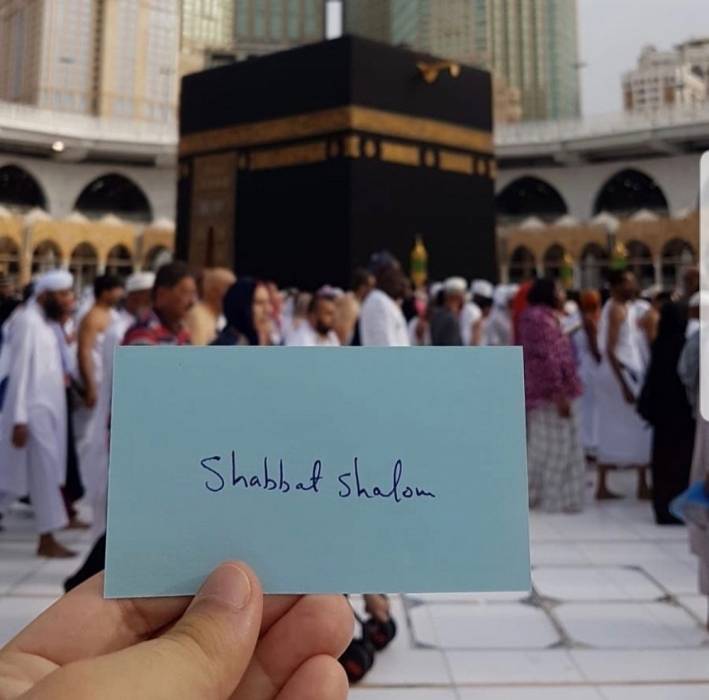 Shabbat shalom